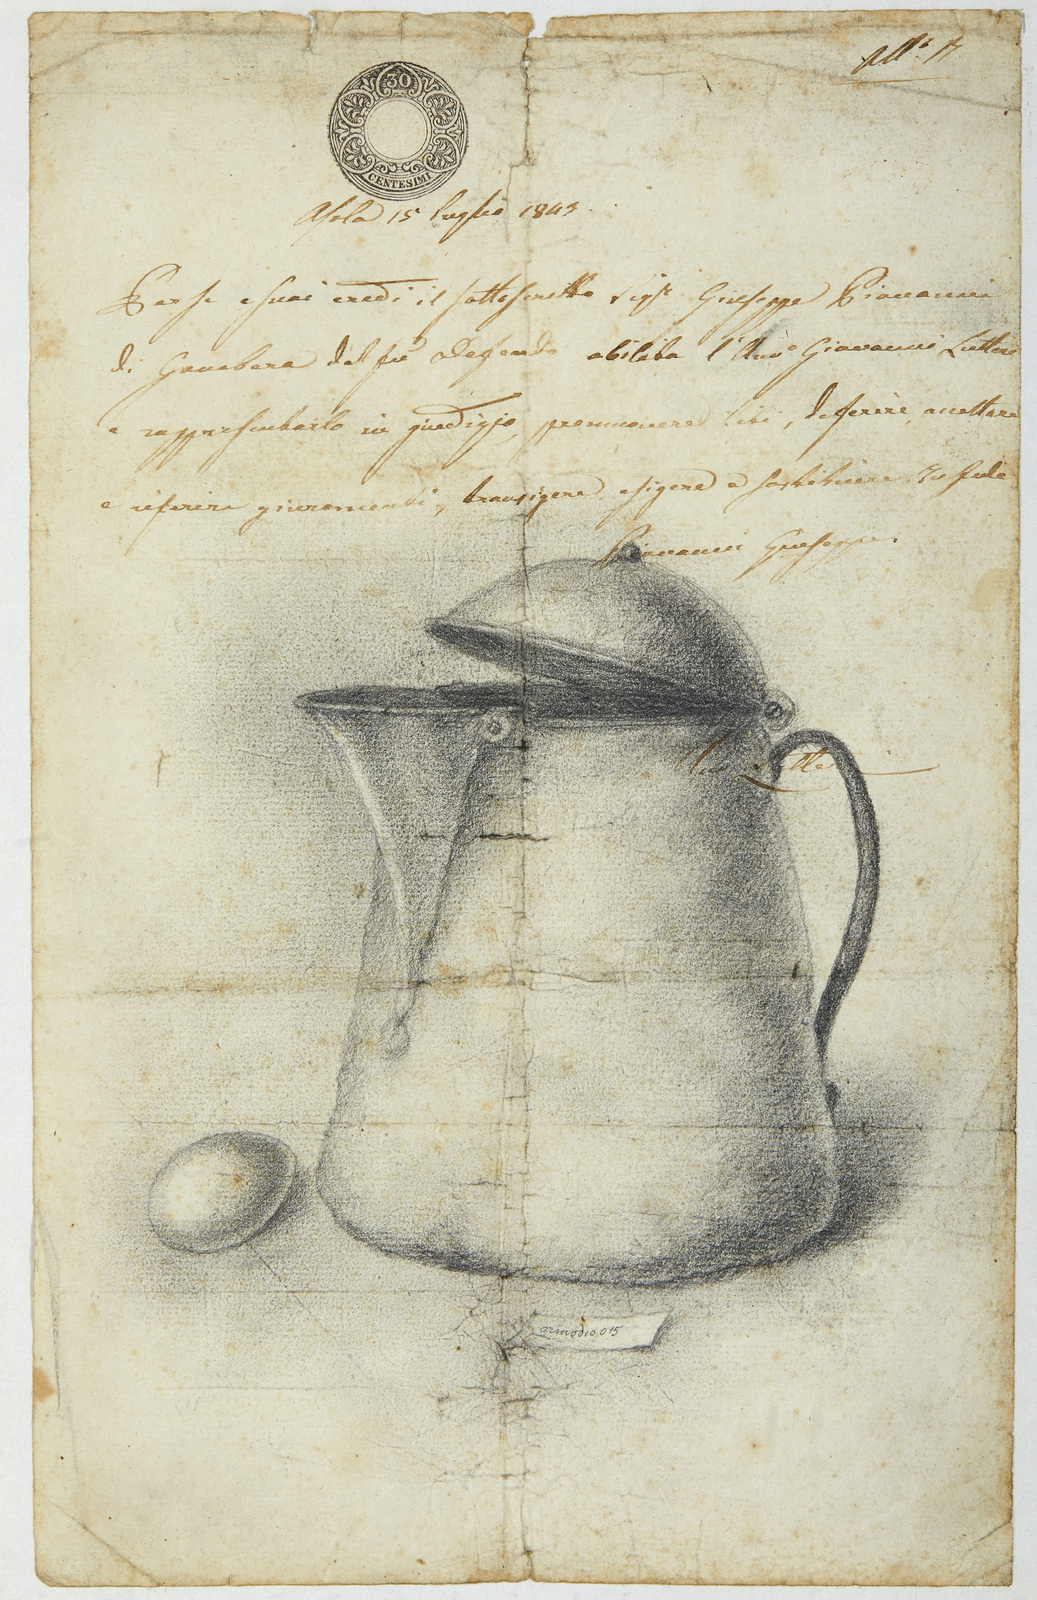 All.° A
30
CENTESIMI
Asola 15 luglio 1843.
Per se e suoi eredi il sottoscritto Sig.r Giuseppe Piovanni
di del fu abilita l'Avv.o Giovanni
a rappresentarlo in giudizio, promuovere liti, deferire, accettare
e riferire giuramenti, transigere, esigere e sostituire. In fede
Giuseppe.
armodio 015